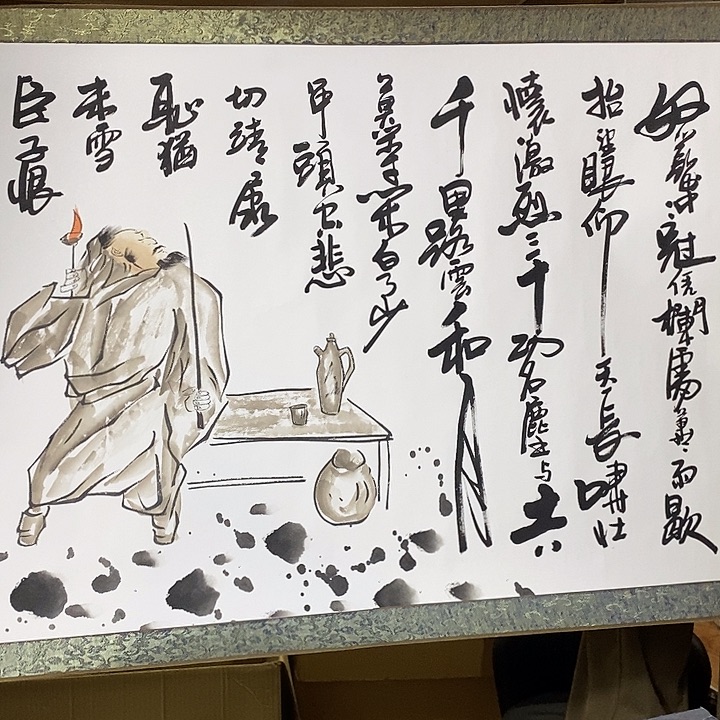 怒髮衝冠凭欄處瀟瀟雨歇
抬望眼仰天長嘯壯
懷激烈三十功名塵与土八
千里路雲和月
莫等閒白了少
年頭空悲
切靖康
恥猶
未雪
臣子恨